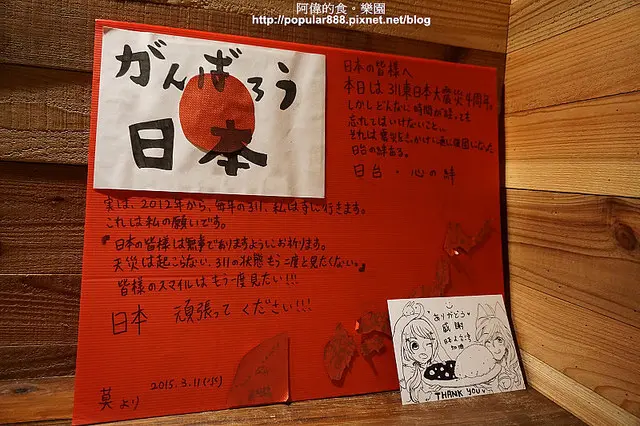 阿偉的食。樂園
http://popular888.pixnet.net/blog
がんばろう
日本
日本の皆様へ
本日は311東日本大震災4周年。
しかしどんなに時間が経っても
忘れてはいけないこと、
それは震災をきっかけに更に強固になった
日台の絆である。
日台・心の絆
実は、2012年から、毎年の311、私は寺に行きます。
これは私の願いです。
『日本の皆様は無事でありますようにお祈ります。
天災は起こらない、311の状態もう二度と見たくない。』
皆様のスマイルはもう一度見たい!!!
日本 頑張ってください!!!
2015.3.11(水)
莫より
ありがとう
感謝
日本と台湾
THANK YOU